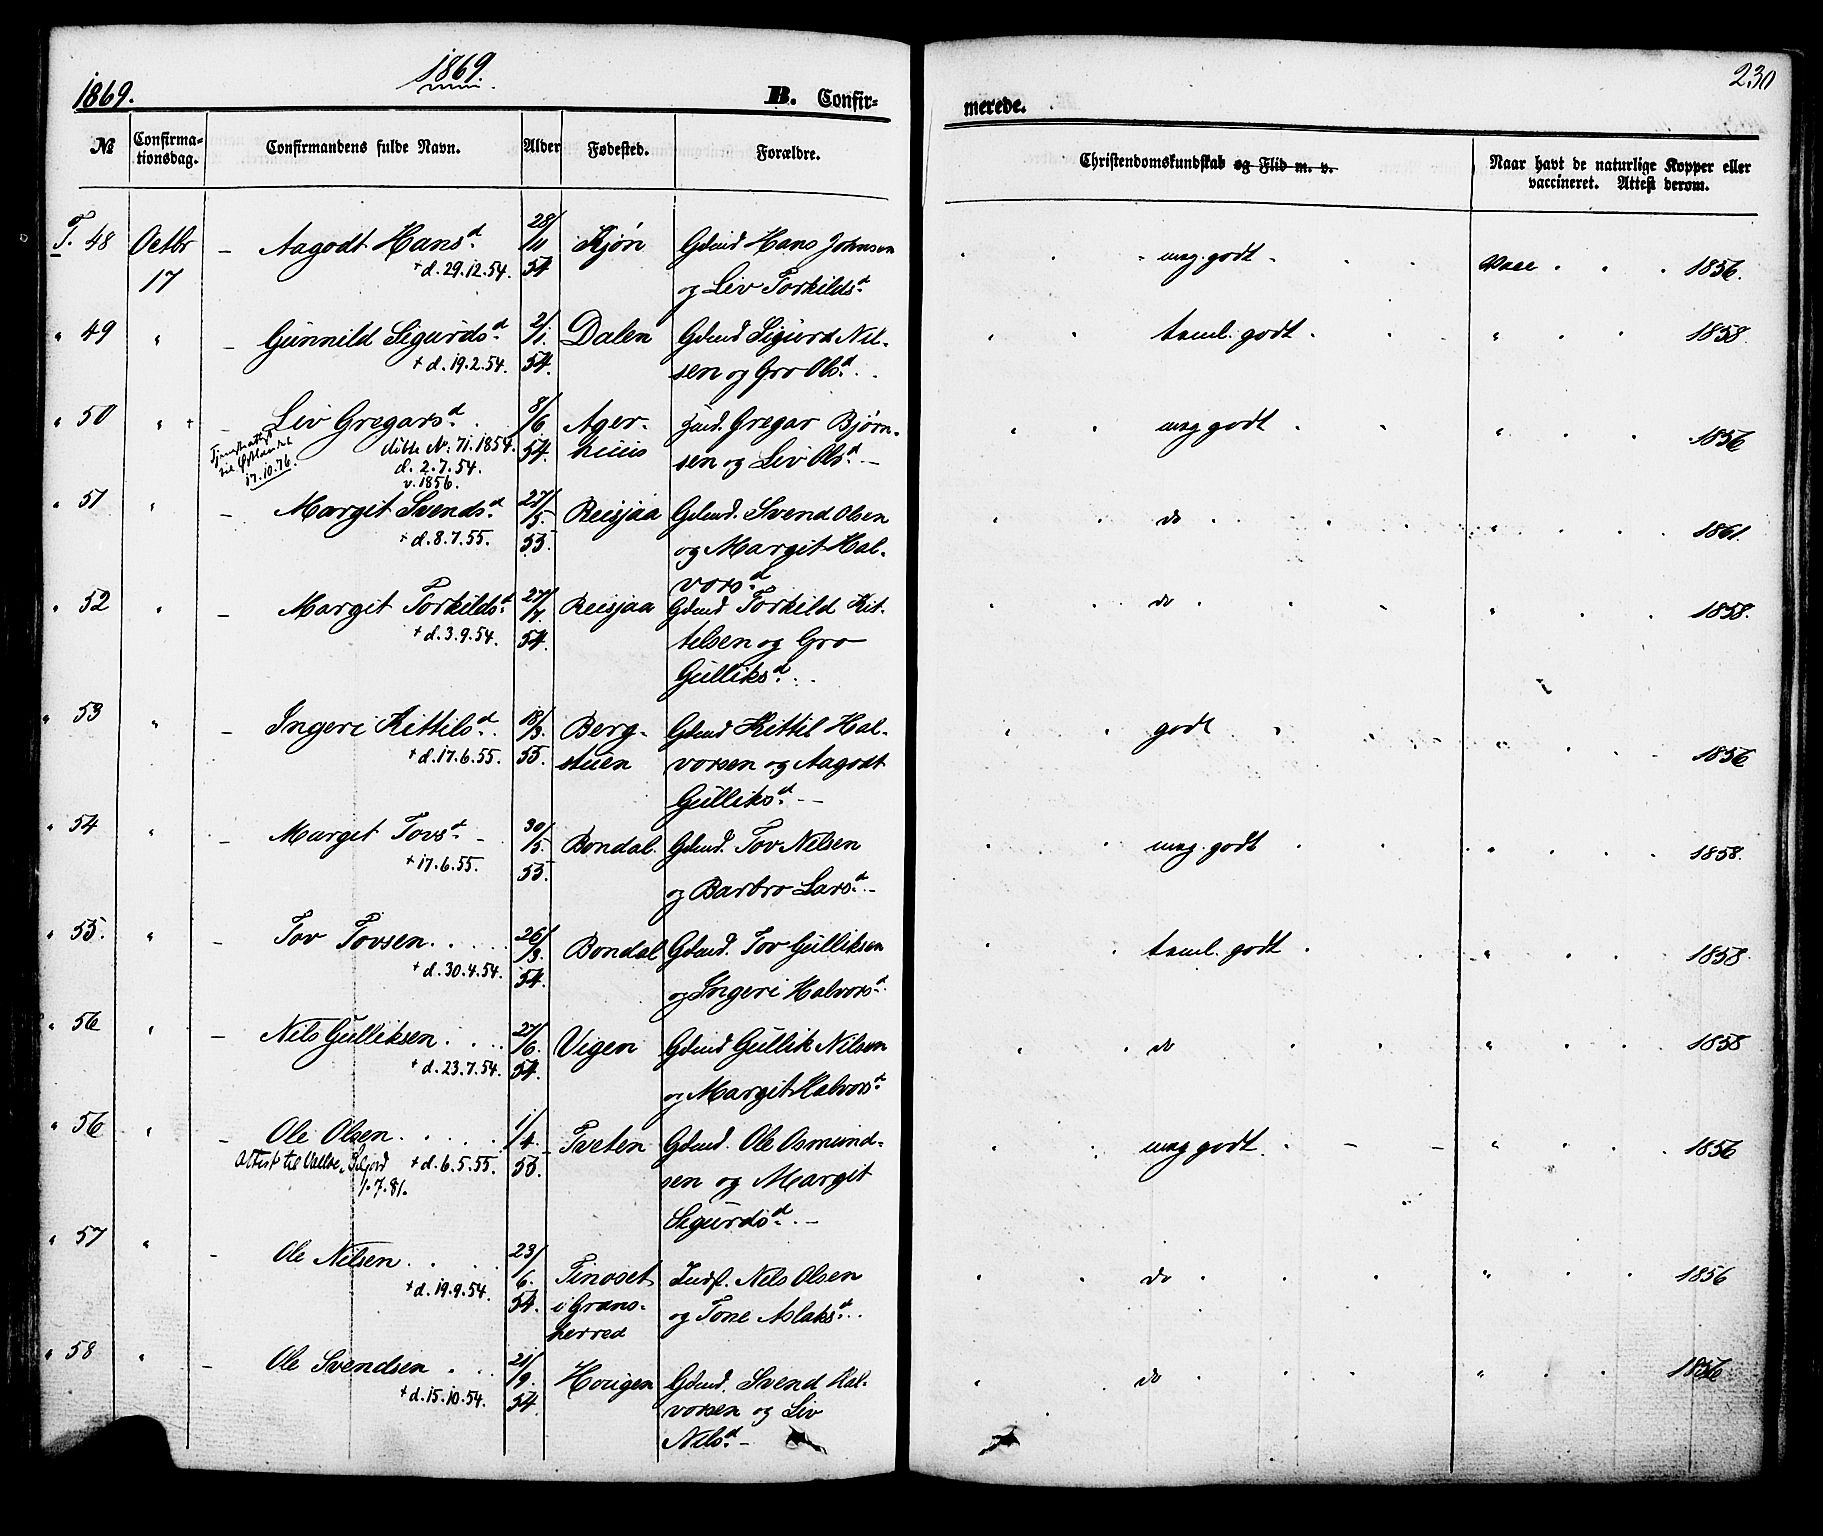 1869. 1869. B. Confir- merede. 230
№ Confirma-tionsdag. Confirmandens fulde Navn. Alder Fødested. Forældre. Christendomskundskab og Flid m. v. Naar havt de naturlige Kopper eller vaccineret. Attest derom.
T. 48 Octbr – Aagodt Hansd. 28/11 Kjøn Gdmd Hans Johnsen mag. godt Vacc 1856.
17 + d. 29.12.54. 54 og Liv Torkildsd.
" 49 " – Gunnild Sigurdsd. 2/1. Dalen Gdmd Sigurd Nil- taml. godt " 1858.
+ d. 19.2.54. 54. sen og Gro Olsd.
" 50 " + – Liv Gregarsd. 8/6 Ager- Gdmd. Gregar Bjørn- mag godt " 1856
til 17.10.76. døbte Nr. 71. 1854. 54. huus sen og Liv Olsd. –
d. 2.7.54.
v. 1856.
" 51 " – Margit Svendsd. 27/5. Reisjaa Gdmd. Svend Olsen do " 1861.
+ d. 8.7.55. 55. og Margit Hal-
vorsd.
" 52 " – Margit Torkildsd. 27/7. Reisjaa Gdmd Torkild Kit- do " 1858.
+ d. 3.9.54. 54. telsen og Gro
Gulliksd.
" 53 " – Ingeri Kittilsd. 18/3. Berg- Gdmd Kittil Hal- godt " 1856
+ d. 17.6.55. 55. stuen vorsen og Aagodt
Gulliksd. –
" 54 " – Margit Tovsd. – 30/5. Bondal. Gdmd. Tov Nilsen mag. godt " 1858.
+ 17.6.55. 55. og Barbro Larsd. –
" 55. " – Tov Tovsen. 26/3. Bondal Gdmd. Tov Gulliksen taml. godt " 1858.
+ d. 30.4.54. 54. og Ingeri Halvorsd.
" 56 " – Nils Gulliksen. 27/6. Vigen Gdmd Gullik Nilsen do " 1858
+ d. 23.7.54. 54. og Margit Halvorsd.
" 56 " – Ole Olsen. 1/4. Tveten Gdmd. Ole Osmund- mag godt. " 1856
Attest til Seljord + d. 6.5.55. 55. sen og Margit
1.7.81. Sigurdsd. –
" 57 " – Ole Nilsen. 23/6. Tinoset Indst. Nils Olsen do " 1856
+ d. 19.9.54. 54. i Grans- og Tone Aslaksd.
herred
" 58 " – Ole Svendsen 21/9. Hougen Gdmd. Svend Hal- do " 1856
+ d. 15.10.54. 54. vorsen og Liv
Nilsd. –